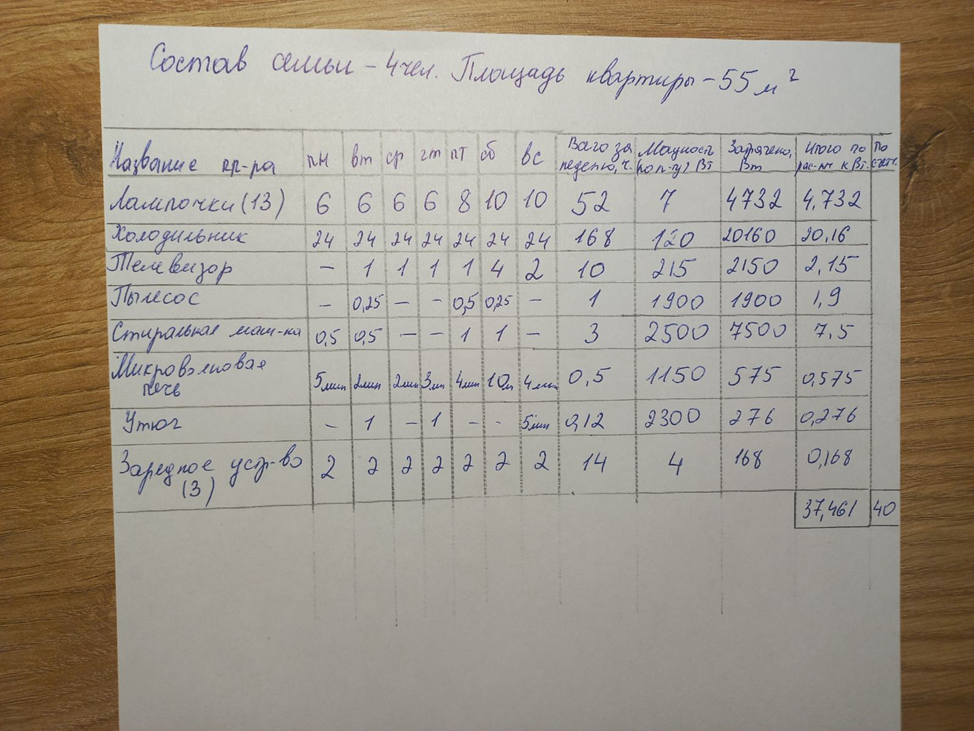 Состав семьи - 4 чел. Площадь квартиры - 55 м²
Название пр-ра пн вт ср чт пт сб вс Всего за неделю, ч. Мощность по п-у, Вт Затрачено, Вт Итого по рас-м кВт. По счетч.
Лампочки (13) 6 6 6 6 8 10 10 52 7 4732 4,732
Холодильник 24 24 24 24 24 24 24 168 120 20160 20,16
Телевизор - 1 1 1 1 4 2 10 215 2150 2,15
Пылесос - 0,25 - - 0,5 0,25 - 1 1900 1900 1,9
Стиральная маш-ка 0,5 0,5 - - 1 1 - 3 2500 7500 7,5
Микроволновая
печь 5мин 2мин 2мин 3мин 4мин 10м 4мин 0,5 1150 575 0,575
Утюг - 1 - 1 - - 5мин 0,12 2300 276 0,276
Зарядное устр-во
(3) 2 2 2 2 2 2 2 14 4 168 0,168
37,461 40